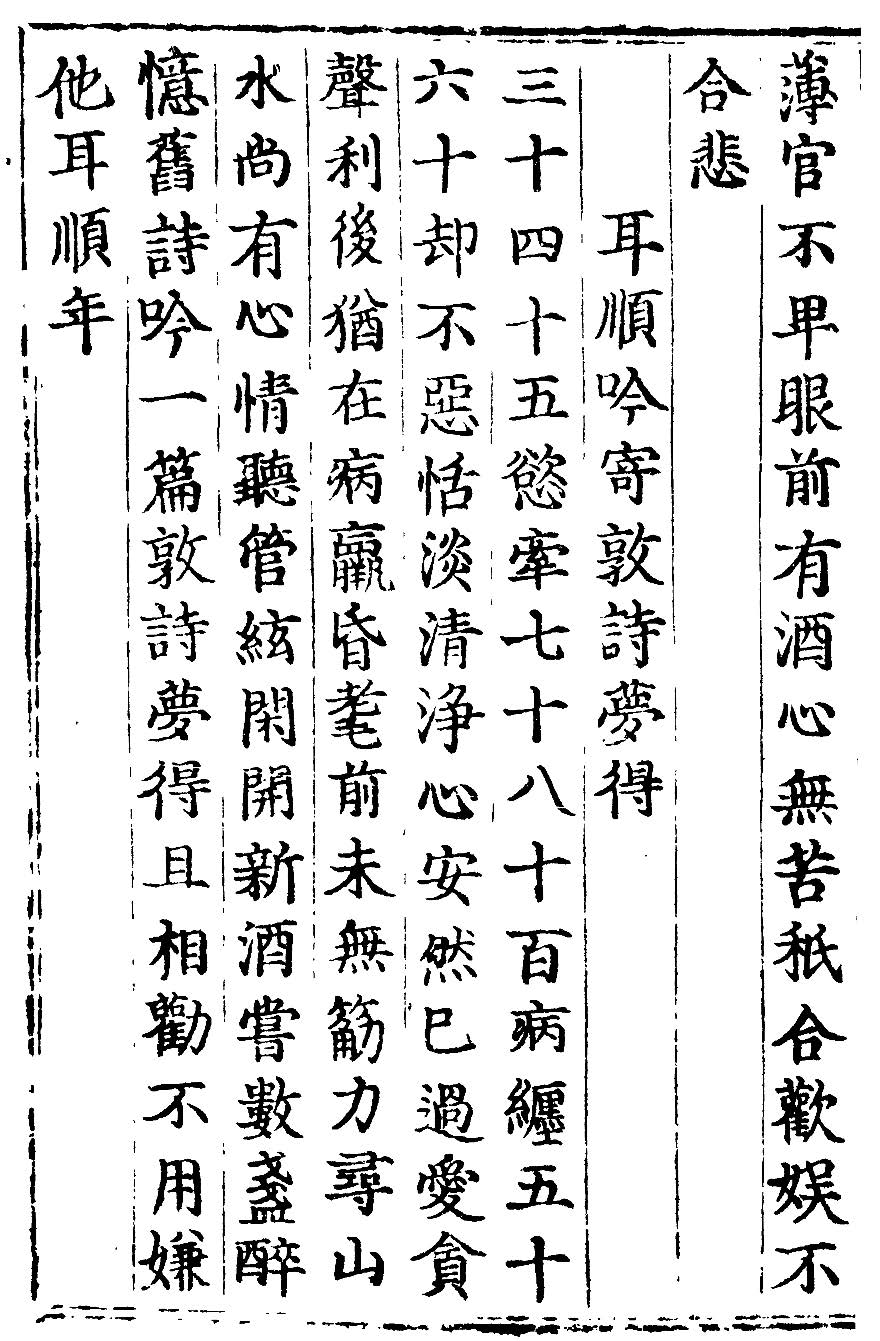 薄官不卑眼前有酒心無苦秖合歡娱不
合悲
耳順吟寄敦詩夢得
三十四十五慾牽七十八十百病纏五十
六十却不惡恬淡清浄心安然巳過愛貪
聲利後猶在病羸昏耄前未無筋力尋山
水尚有心情聽管絃閑開新酒嘗數盞醉
憶舊詩吟一篇敦詩夢得且相勸不用嫌
他耳順年